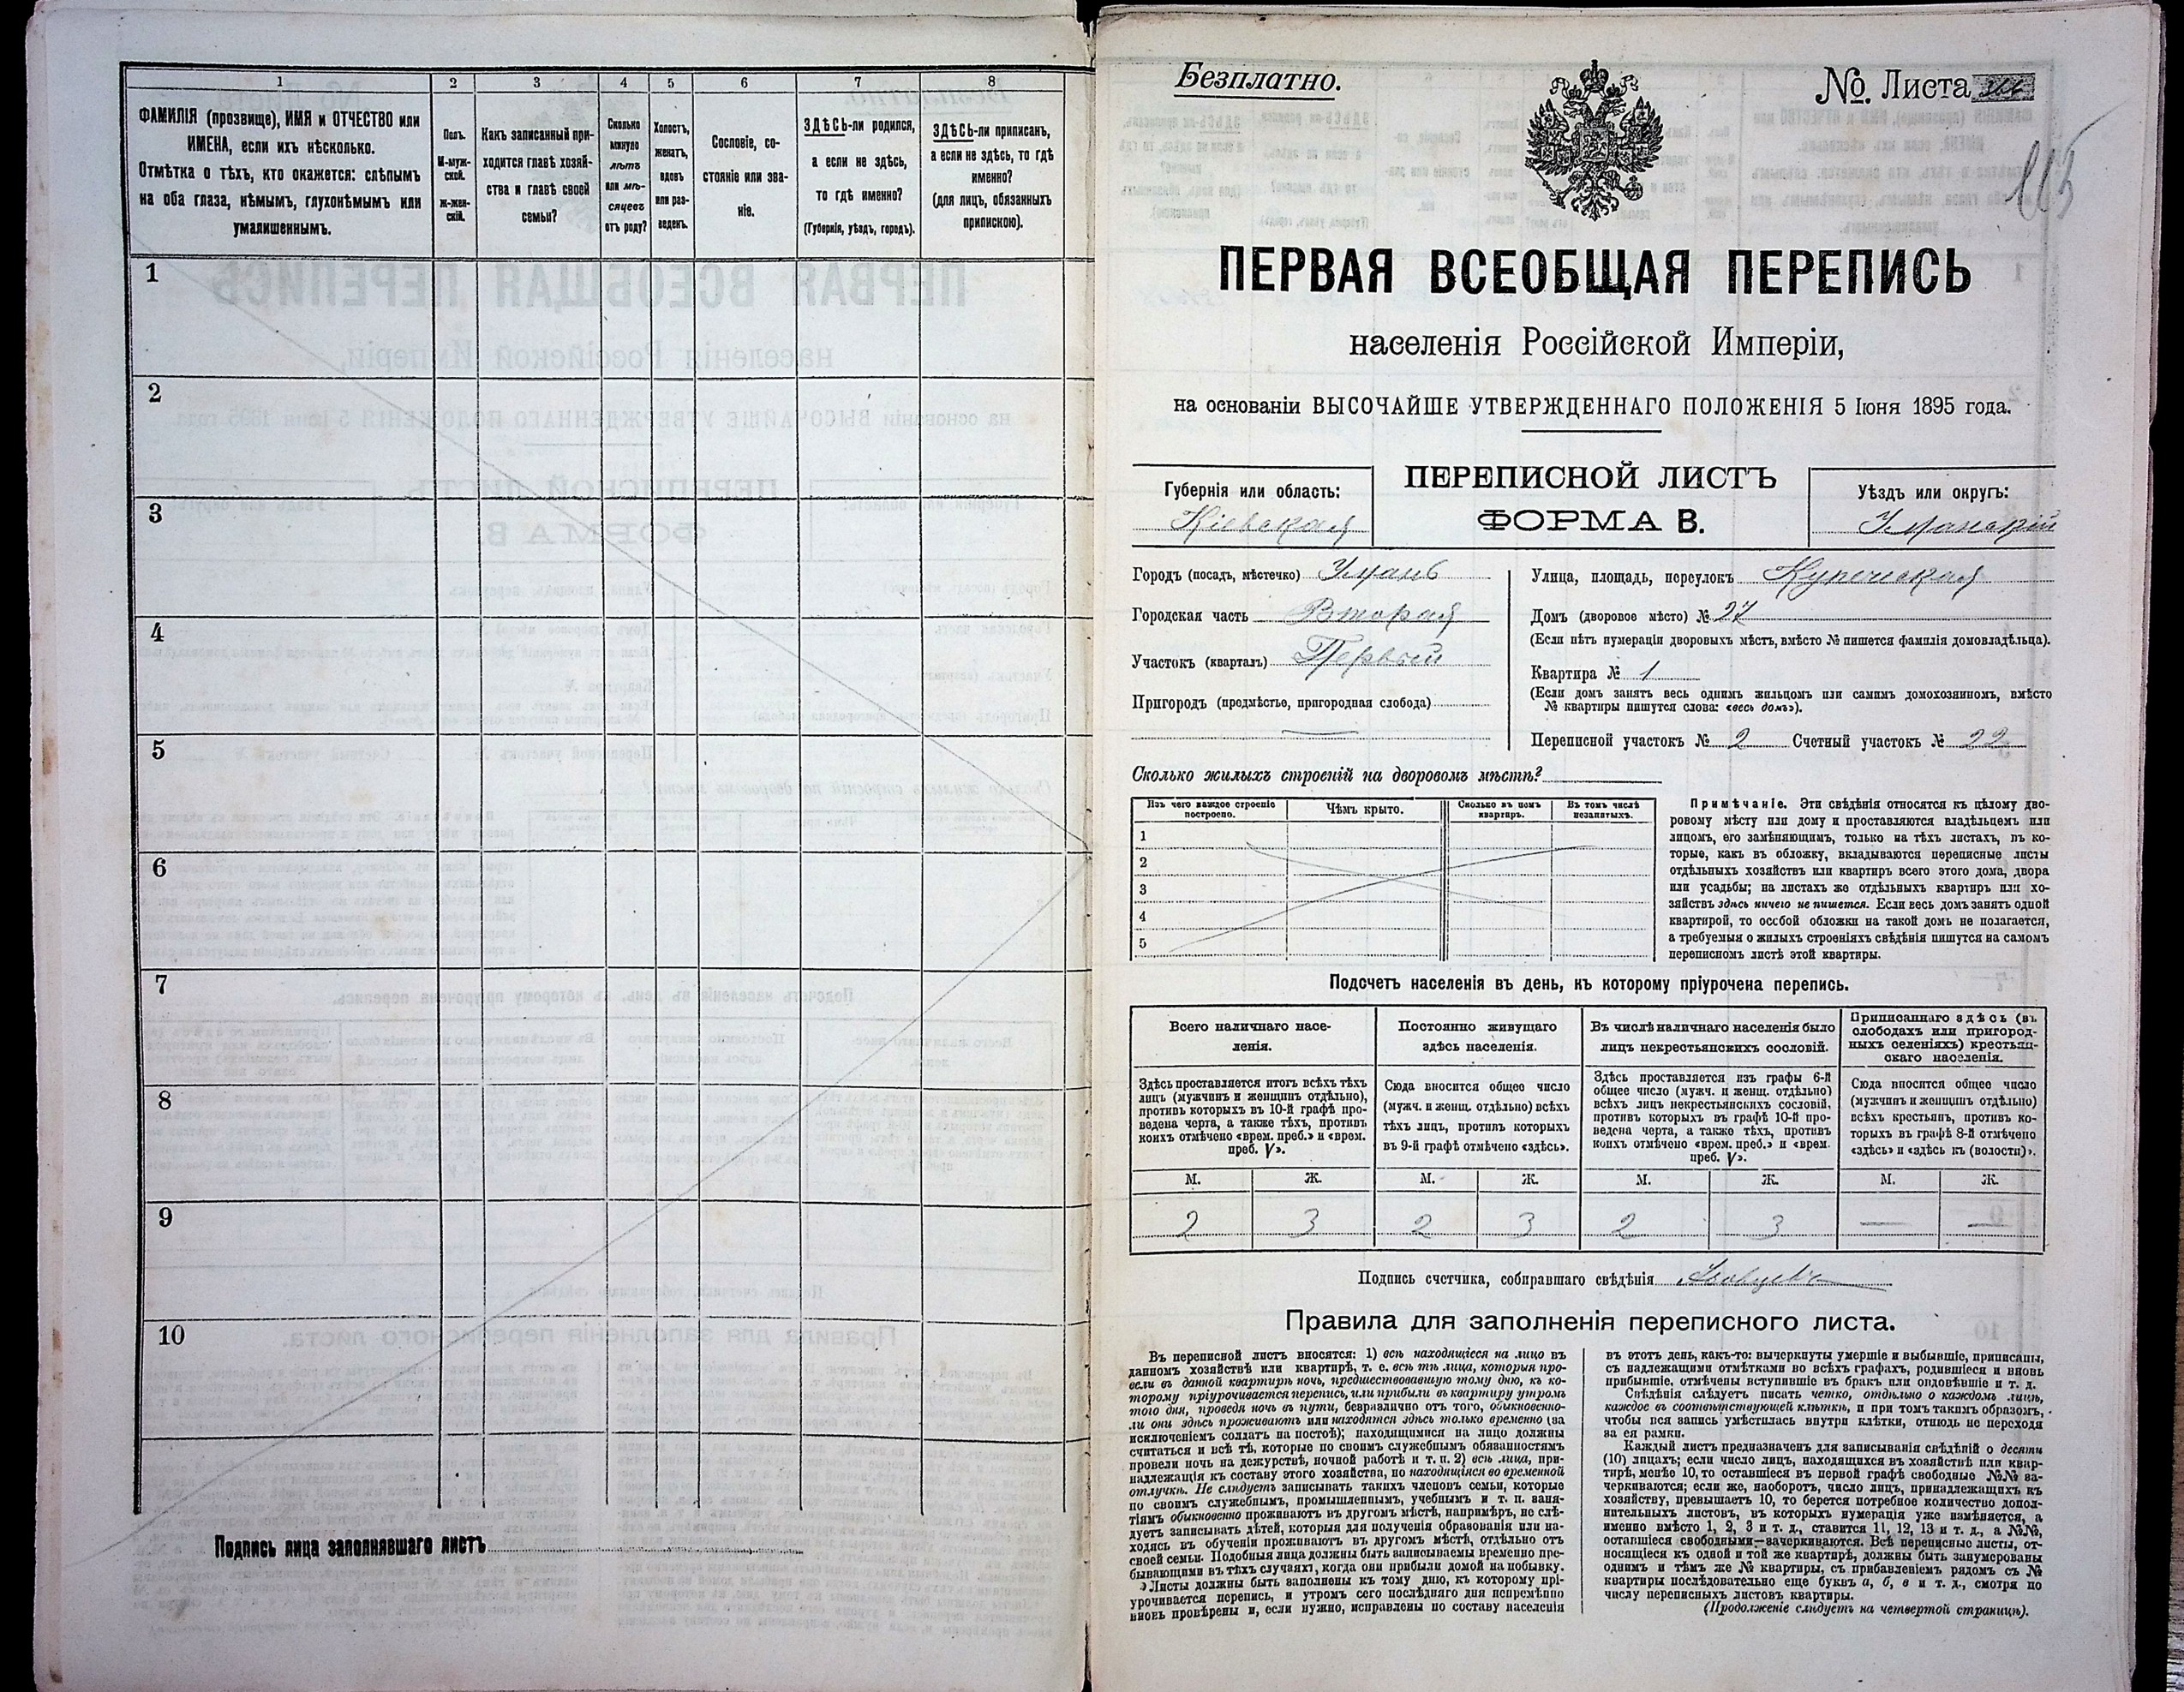 1 2 3 4 5 6 7 8
ФАМИЛІЯ (прозвище), ИМЯ и ОТЧЕСТВО или
ИМЕНА, если ихъ нѣсколько.
Отмѣтка о тѣхъ, кто окажется: слѣпымъ
на оба глаза, нѣмымъ, глухонѣмымъ или
умалишеннымъ.
Полъ.
М-муж-
ской.
Ж-жен-
скій.
Какъ записанный при-
ходится главѣ хозяй-
ства и главѣ своей
семьи?
Сколько
минуло
лѣтъ
или мѣ-
сяцевъ
отъ роду?
Холостъ,
женатъ,
вдовъ
или раз-
веденъ.
Сословіе, со-
стояніе или зва-
ніе.
ЗДѢСЬ-ли родился,
а если не здѣсь,
то гдѣ именно?
(Губернія, уѣздъ, городъ).
ЗДѢСЬ-ли приписанъ,
а если не здѣсь, то гдѣ
именно?
(для лицъ, обязанныхъ
припискою).
1
2
3
4
5
6
7
8
9
10
Подпись лица заполнявшаго листъ
Безплатно.
№. Листа
ПЕРВАЯ ВСЕОБЩАЯ ПЕРЕПИСЬ
населенія Россійской Имперіи,
на основаніи ВЫСОЧАЙШЕ УТВЕРЖДЕННАГО ПОЛОЖЕНІЯ 5 Іюня 1895 года.
Губернія или область:
Кіевская
ПЕРЕПИСНОЙ ЛИСТЪ
ФОРМА В.
Уѣздъ или округъ:
Уманскій
Городъ (посадъ, мѣстечко) Умань
Городская часть Вторая
Участокъ (кварталъ) Первый
Пригородъ (предмѣстье, пригородная слобода)
Улица, площадь, переулокъ Купеческая
Домъ (дворовое мѣсто) № 27
(Если нѣтъ нумераціи дворовыхъ мѣстъ, вмѣсто № пишется фамилія домовладѣльца).
Квартира № 1
(Если домъ занятъ весь однимъ жильцомъ или самимъ домохозяиномъ, вмѣсто
№ квартиры пишутся слова: «весь домъ»).
Переписной участокъ № 2 Счетный участокъ № 22
Сколько жилыхъ строеній на дворовомъ мѣстѣ?
Изъ чего каждое строеніе
построено.
Чѣмъ крыто.
Сколько въ немъ
квартиръ.
Въ томъ числѣ
незанятыхъ.
1
2
3
4
5
Примѣчаніе. Эти свѣдѣнія относятся къ цѣлому дво-
ровому мѣсту или дому и проставляются владѣльцемъ или
лицомъ, его замѣняющимъ, только на тѣхъ листахъ, въ ко-
торые, какъ въ обложку, вкладываются переписные листы
отдѣльныхъ хозяйствъ или квартиръ всего этого дома, двора
или усадьбы; на листахъ же отдѣльныхъ квартиръ или хо-
зяйствъ здѣсь ничего не пишется. Если весь домъ занятъ одной
квартирой, то особой обложки на такой домъ не полагается,
а требуемыя о жилыхъ строеніяхъ свѣдѣнія пишутся на самомъ
переписномъ листѣ этой квартиры.
Подсчетъ населенія въ день, къ которому пріурочена перепись.
Всего наличнаго насе-
ленія.
Постоянно живущаго
здѣсь населенія.
Въ числѣ наличнаго населенія было
лицъ некрестьянскихъ сословій.
Приписаннаго здѣсь (въ
слободахъ или пригород-
ныхъ селеніяхъ) крестьян-
скаго населенія.
Здѣсь проставляется итогъ всѣхъ тѣхъ
лицъ (мужчинъ и женщинъ отдѣльно),
противъ которыхъ въ 10-й графѣ про-
ведена черта, а также тѣхъ, противъ
коихъ отмѣчено «врем. преб.» и «врем.
преб. V».
Сюда вносится общее число
(мужч. и женщ. отдѣльно) всѣхъ
тѣхъ лицъ, противъ которыхъ
въ 9-й графѣ отмѣчено «здѣсь».
Здѣсь проставляется изъ графы 6-й
общее число (мужч. и женщ. отдѣльно)
всѣхъ лицъ некрестьянскихъ сословій,
противъ которыхъ въ графѣ 10-й про-
ведена черта, а также тѣхъ, противъ
коихъ отмѣчено «врем. преб.» и «врем.
преб. V».
Сюда вносится общее число
(мужчинъ и женщинъ отдѣльно)
всѣхъ крестьянъ, противъ ко-
торыхъ въ графѣ 8-й отмѣчено
«здѣсь» и «здѣсь къ (волости)».
М. Ж. М. Ж. М. Ж. М. Ж.
2 3 2 3 2 3 — —
Подпись счетчика, собиравшаго свѣдѣнія
Правила для заполненія переписного листа.
Въ переписной листъ вносятся: 1) всѣ находящіеся на лицо въ
данномъ хозяйствѣ или квартирѣ, т. е. всѣ тѣ лица, которыя про-
вели въ данной квартирѣ ночь, предшествовавшую тому дню, къ ко-
торому пріурочивается перепись, или прибыли въ квартиру утромъ
того дня, проведя ночь въ пути, безразлично отъ того, обыкновенно-
ли они здѣсь проживаютъ или находятся здѣсь только временно (за
исключеніемъ солдатъ на постоѣ); находящимися на лицо должны
считаться и всѣ тѣ, которые по своимъ служебнымъ обязанностямъ
провели ночь на дежурствѣ, ночной работѣ и т. п. 2) всѣ лица, при-
надлежащія къ составу этого хозяйства, но находящіяся во временной
отлучкѣ. Не слѣдуетъ записывать такихъ членовъ семьи, которые
по своимъ служебнымъ, промышленнымъ, учебнымъ и т. п. заня-
тіямъ обыкновенно проживаютъ въ другомъ мѣстѣ, напримѣръ, не слѣ-
дуетъ записывать дѣтей, которыя для полученія образованія или на-
ходясь въ обученіи проживаютъ въ другомъ мѣстѣ, отдѣльно отъ
своей семьи. Подобныя лица должны быть записываемы временно пре-
бывающими въ тѣхъ случаяхъ, когда они прибыли домой на побывку.
Листы должны быть заполнены къ тому дню, къ которому прі-
урочивается перепись, и утромъ сего послѣдняго дня непремѣнно
вновь провѣрены и, если нужно, исправлены по составу населенія
въ этотъ день, какъ-то: вычеркнуты умершіе и выбывшіе, приписаны,
съ надлежащими отмѣтками во всѣхъ графахъ, родившіеся и вновь
прибывшіе, отмѣчены вступившіе въ бракъ или овдовѣвшіе и т. д.
Свѣдѣнія слѣдуетъ писать четко, отдѣльно о каждомъ лицѣ,
каждое въ соотвѣтствующей клѣткѣ, и при томъ такимъ образомъ,
чтобы вся запись умѣстилась внутри клѣтки, отнюдь не переходя
за ея рамки.
Каждый листъ предназначенъ для записыванія свѣдѣній о десяти
(10) лицахъ; если число лицъ, находящихся въ хозяйствѣ или квар-
тирѣ, менѣе 10, то оставшіеся въ первой графѣ свободные №№ за-
черкиваются; если же, наоборотъ, число лицъ, принадлежащихъ къ
хозяйству, превышаетъ 10, то берется потребное количество допол-
нительныхъ листовъ, въ которыхъ нумерація уже измѣняется, а
именно вмѣсто 1, 2, 3 и т. д., ставится 11, 12, 13 и т. д., а №№,
оставшіеся свободными—зачеркиваются. Всѣ переписные листы, от-
носящіеся къ одной и той же квартирѣ, должны быть занумерованы
однимъ и тѣмъ же № квартиры, съ прибавленіемъ рядомъ съ №
квартиры послѣдовательно еще буквъ а, б, в и т. д., смотря по
числу переписныхъ листовъ квартиры.
(Продолженіе слѣдуетъ на четвертой страницѣ).